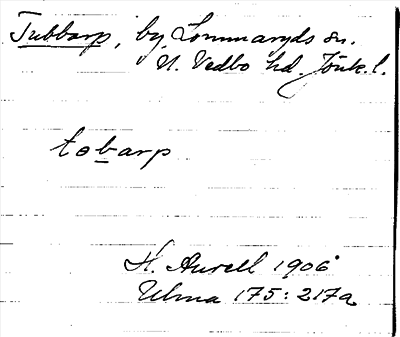 Tubbarp, by, Lommaryds sn.
N. Vedbo hd. Jönk. l.
tobarp
H. Aurell 1906
Ulma 175:217a